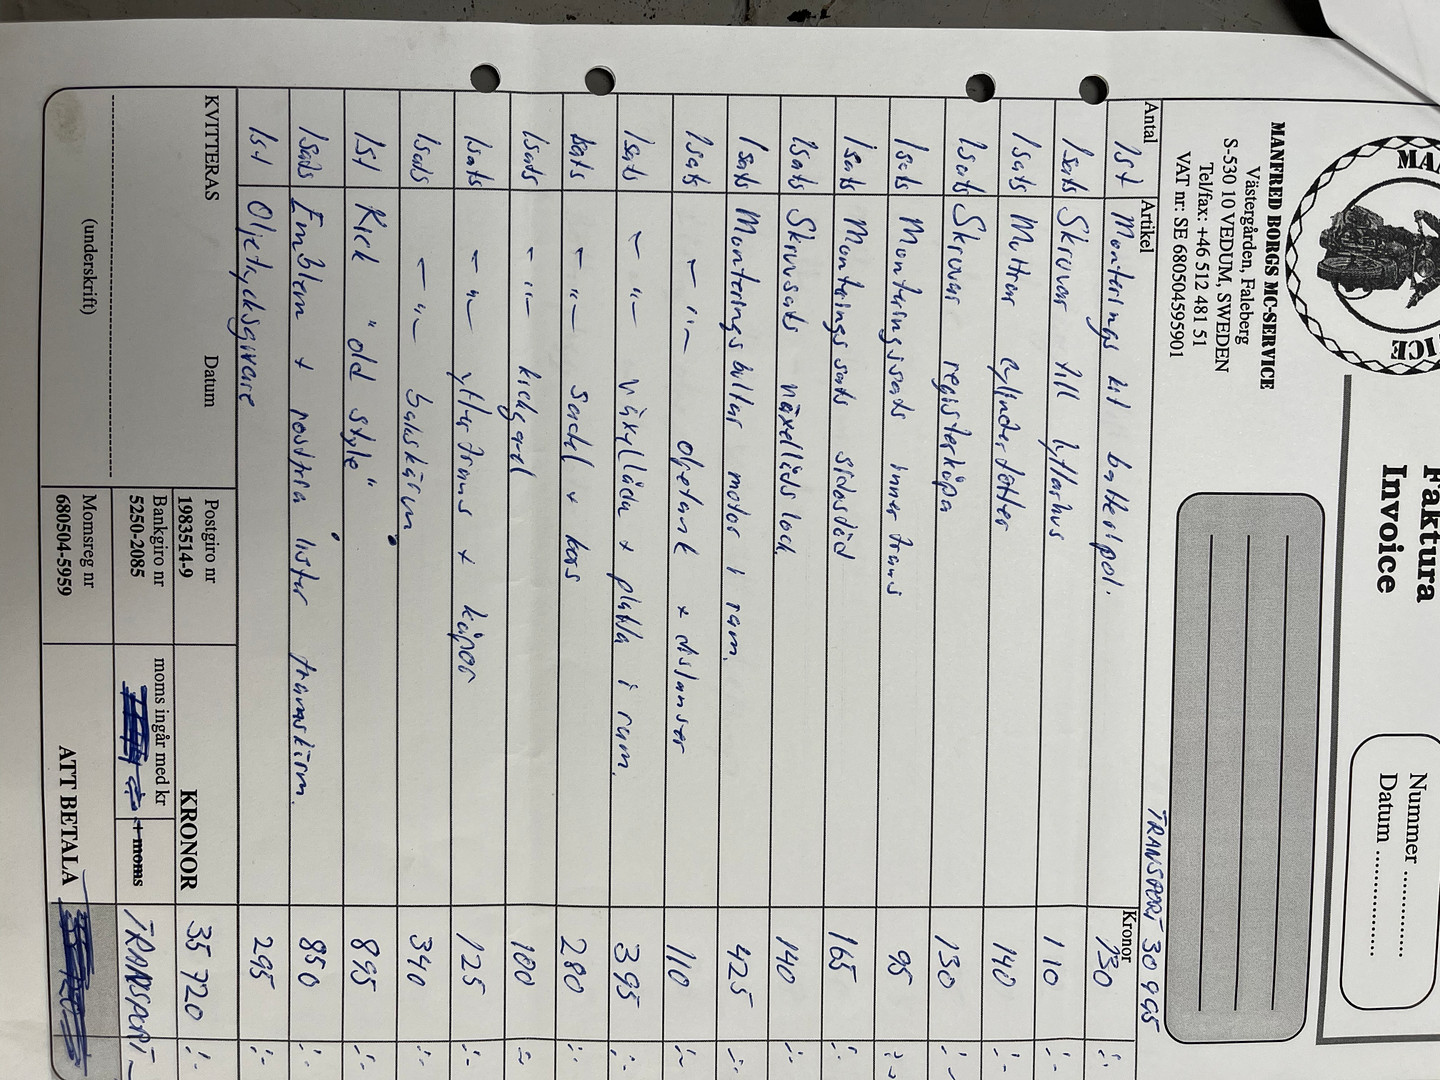 MA
ICE
Faktura
Invoice
Nummer
Datum
MANFRED BORGS MC-SERVICE
Västergården, Faleberg
S-530 10 VEDUM, SWEDEN
Tel/fax: +46 512 481 51
VAT nr: SE 680504595901
TRANSPORT 30 995
Antal Artikel Kronor
1st Monterings kit batteripol. 730 :-
1sats Skruvar till lyftarhus 110 :-
1sats Muttrar cylinderfötter 140 :-
1sats Skruvar registerkåpa 130 :-
1sats Monteringssats inner trans 95 :-
1sats Monteringssats sidostöd 165 :-
1sats Skruvsats växellåds lock 140 :-
1sats Monterings bultar motor i ram. 425 :-
1sats - " - oljetank + distanser 110 :-
1sats - " - växellåda + platta i ram. 395 :-
1sats - " - sadel + hors 280 :-
1sats - " - kickgard 100 :-
1sats - " - yttertrans + kåpor 125 :-
1sats - " - bakskärm 340 :-
1st Kick "old style" 895 :-
1sats Emblem + rostfria lister framskärm. 850 :-
1st Oljetycksgivare 295 :-
KVITTERAS Datum
(underskrift)
Postgiro nr
1983514-9
Bankgiro nr
5250-2085
Momsreg nr
680504-5959
KRONOR 35 720 :-
moms ingår med kr + moms TRANSPORT
ATT BETALA